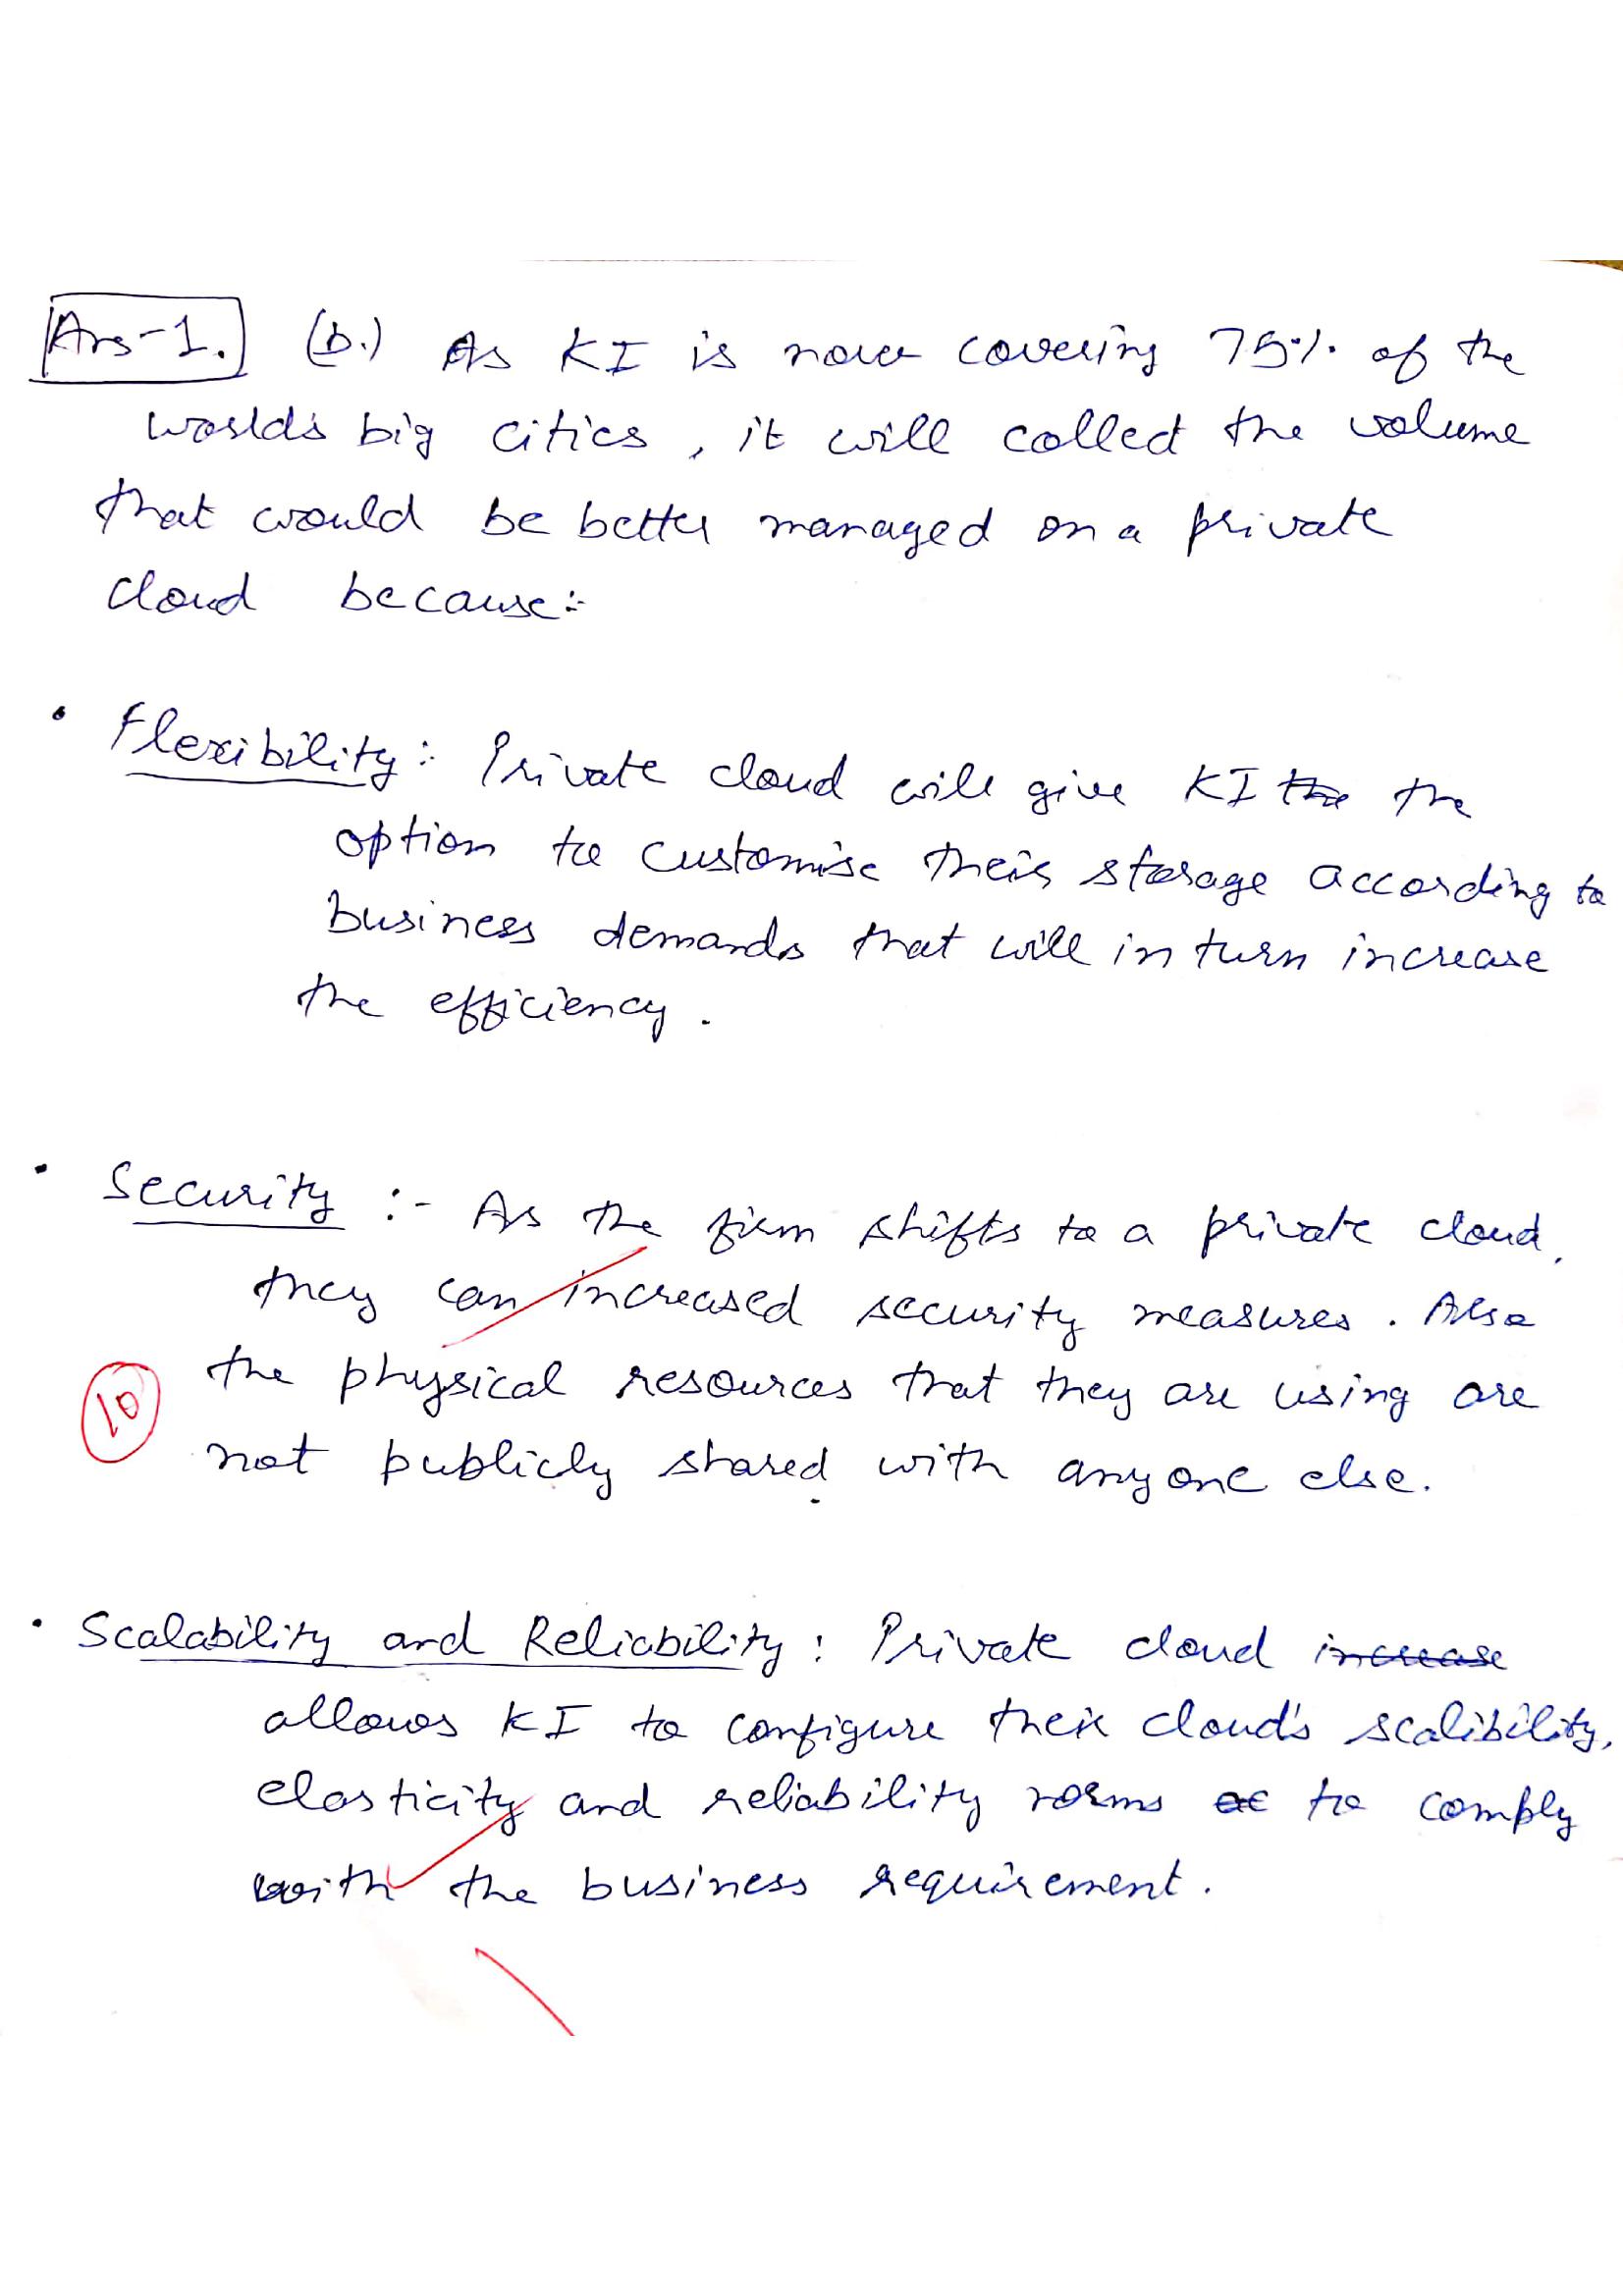 Ans-1. (b.) As KI is now covering 75% of the
world's big cities, it will collect the volume
that would be better managed on a private
cloud because:-
• Flexibility: Private cloud will give KI the the
option to customise their storage according to
business demands that will in turn increase
the efficiency.
• Security :- As the firm shifts to a private cloud,
they can increased security measures. Also
the physical resources that they are using are
10
not publicly shared with anyone else.
• Scalability and Reliability: Private cloud increase
allows KI to configure their cloud's scalibility,
elasticity and reliability norms to comply
with the business requirement.